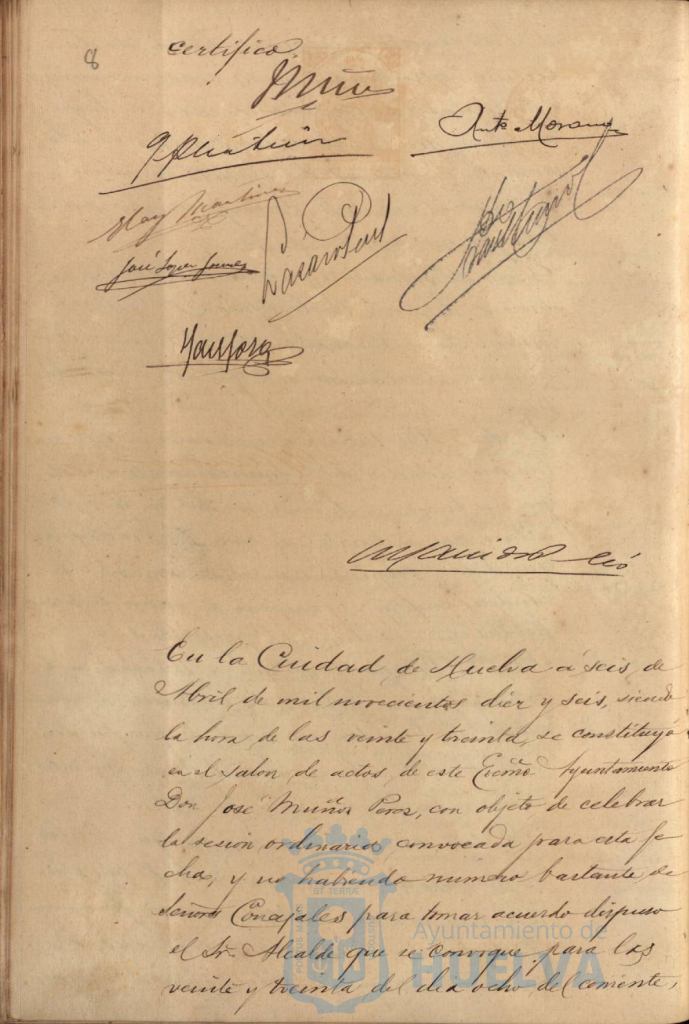 8
certifico.
Muñoz
Antº Moreno
Eloy Martinez
José Lopez Gomez
En la Ciudad de Huelva á seis de
Abril de mil novecientos diez y seis, siendo
la hora de las veinte y treinta, se constituyó
en el salon de actos de este Excmo Ayuntamiento
Don José Muñoz Perez, con objeto de celebrar
la sesion ordinaria convocada para esta fe
cha, y no habiendo número bastante de
Señores Concejales para tomar acuerdo dispuso
el Sr. Alcalde que se convoque para las
veinte y treinta del dia ocho del corriente,
Ayuntamiento de
HUELVA